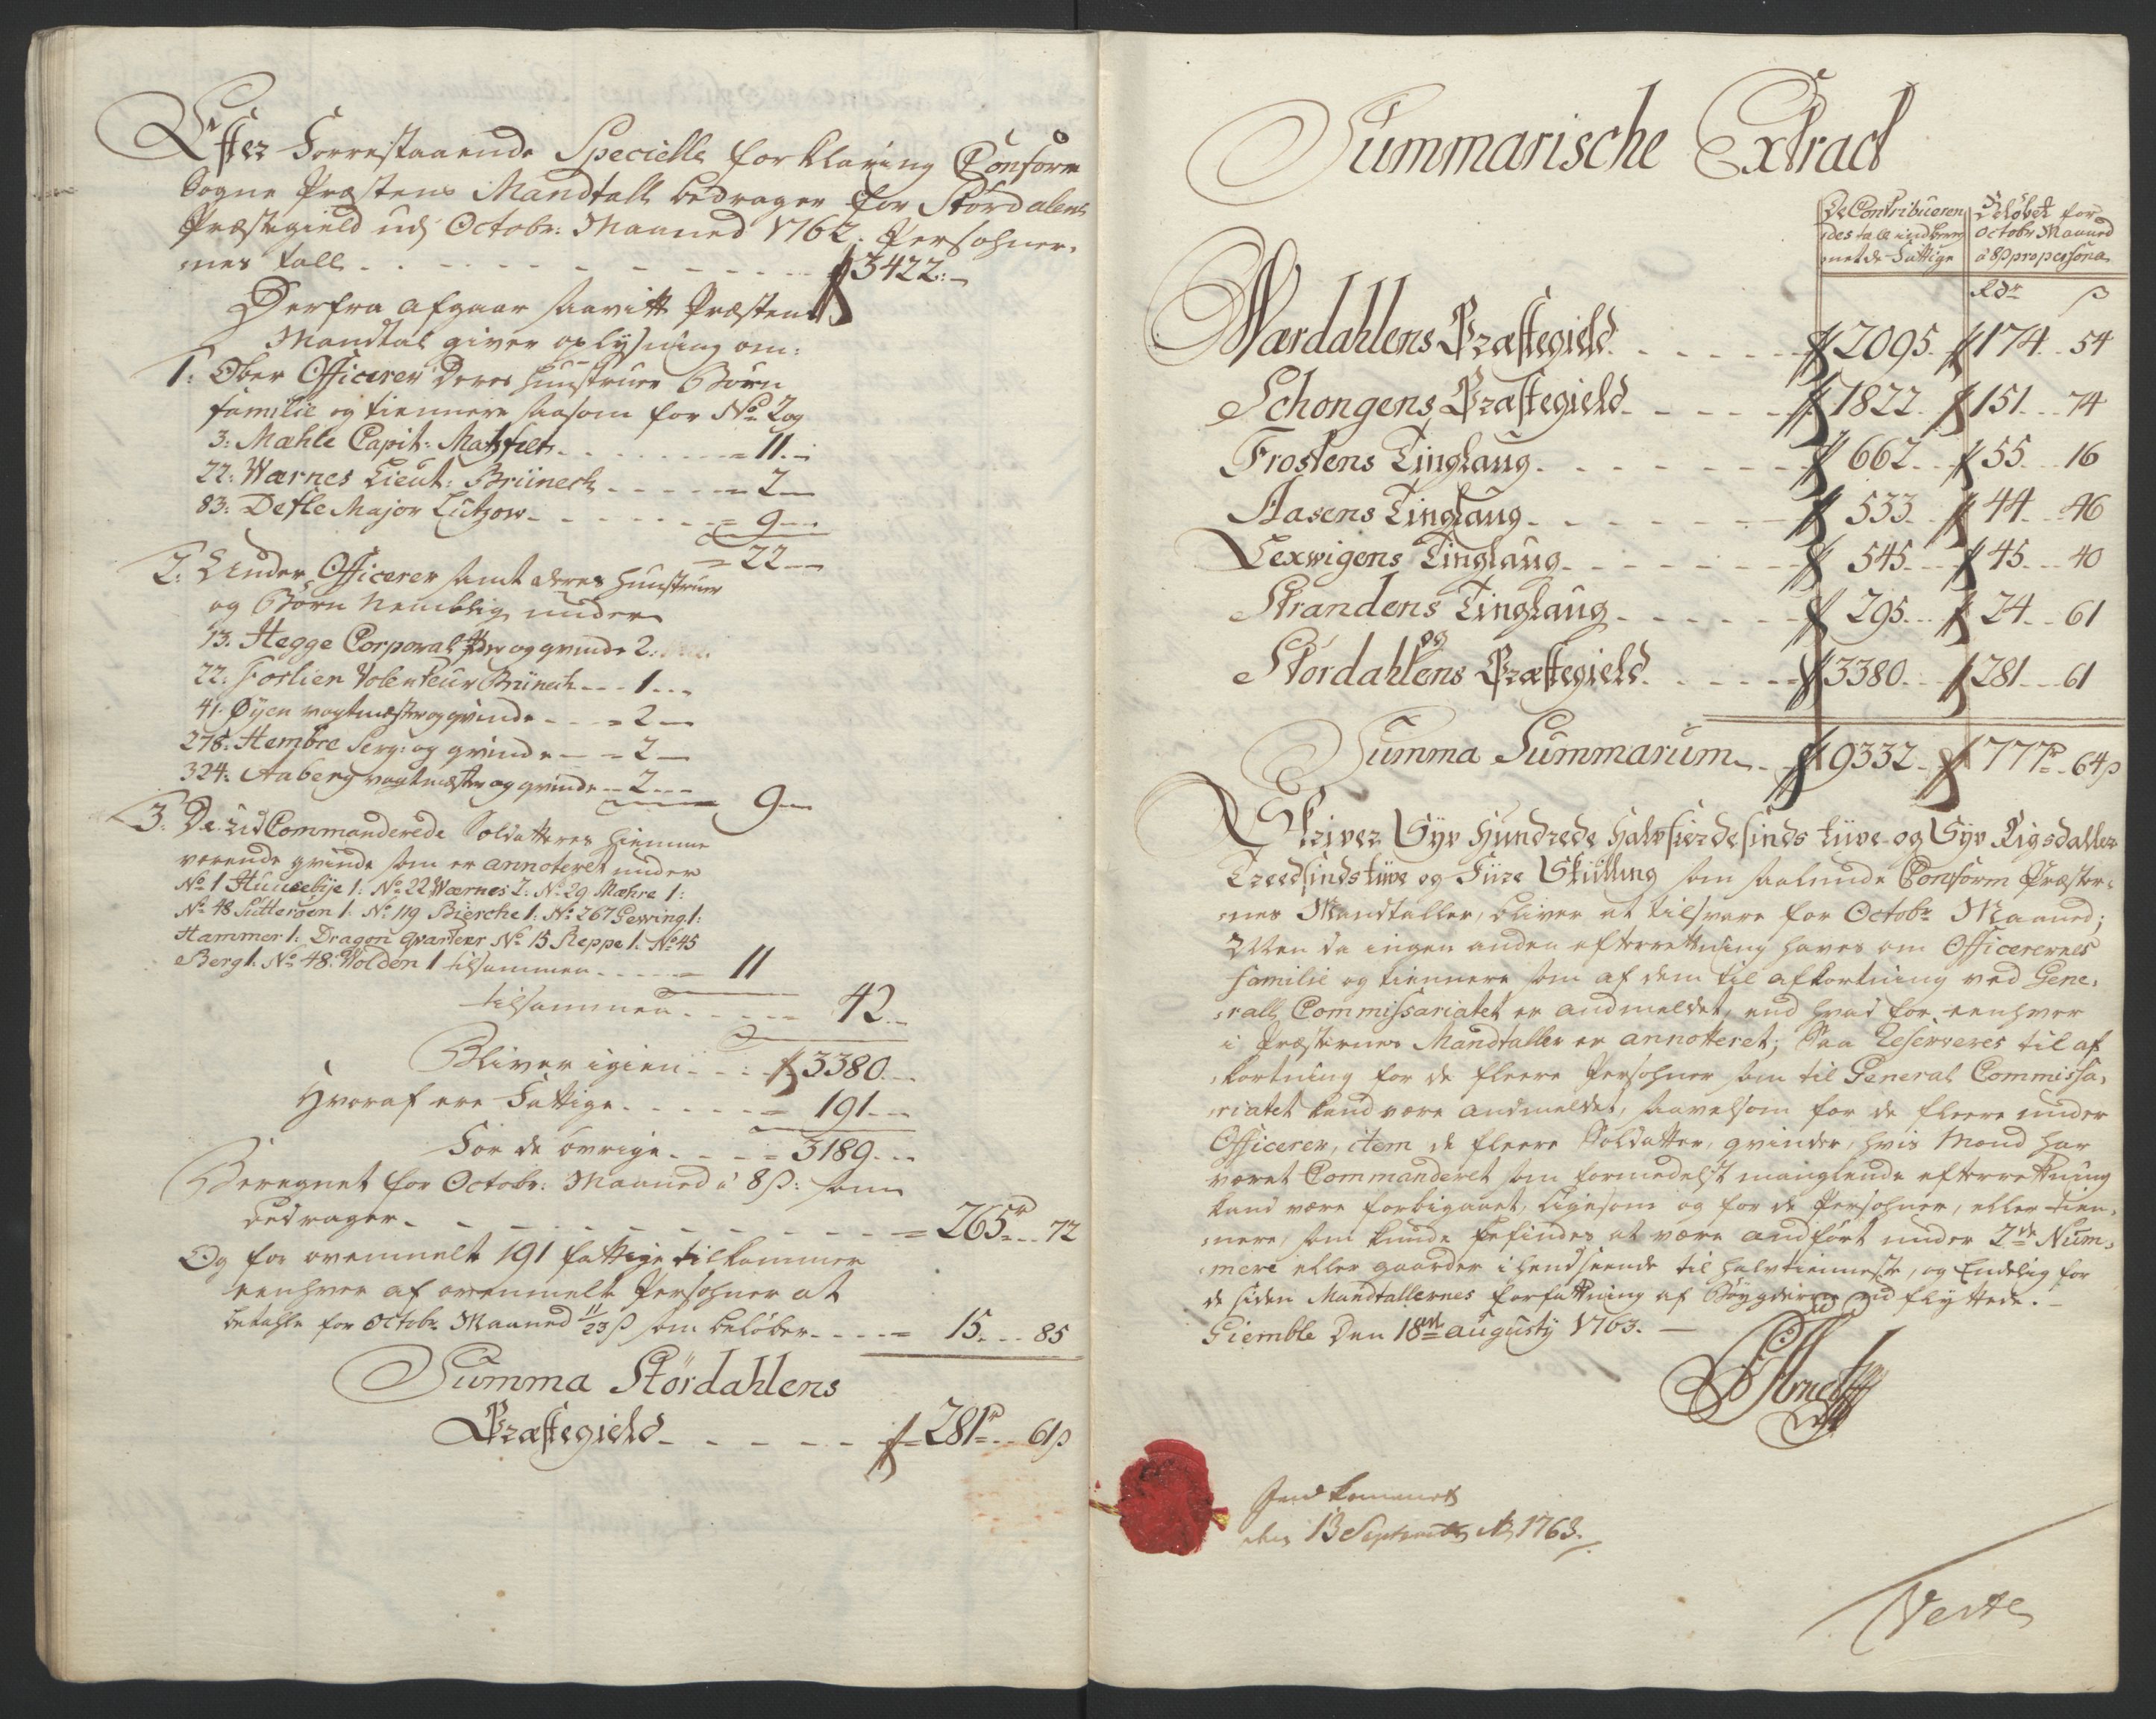 Efter Forrestaaende Specielle forklaring Conform
Sogne Præstens Mandtall bedrager for Stördalens
Præstegield udj Octobr: Maaned 1762. Persohner-
nes tall - - - 3422:-
Derfra afgaar saavitt Præstens
Mandtal giver oplysning om:
1: Ober Officerer deres hustruer Börn
familie og tiennere saasom for No 2 og
3: Mæhle Capit: Matzfelt - - - 11.-
22: Wærnes Lieut: Brüneck - - - 2 -
83: Defle Major Lützow - - - 9 -
22 -
2: Under Officerer samt deres hustruer
og Börn nemblig under
13: Hegge Corporal og qvinde 2.
22: Forlien Volenteur Brüneck - - - 1 -
41: Öyen vagtmæster og qvinde - - - 2 -
278: Hembre Serg: og qvinde - - 2 -
324: Aaberg vagtmæster og qvinde - - 2 -
9 -
3: De ud Commanderede Soldatteres hiemme
værende qvinde som er annoteret under
No 1 Huusebye 1: No 22 Wærnes 2: No 29 Mæhre 1:
No 48 Sutterøen 1: No 119 Bierche 1: No 267 Gewing 1:
Hammer 1: Dragon qvarteer No 15 Reppe 1: No 45
Berg 1: No 48: Wolden 1 tilsammen - - - 11
tilsammen - - - 42 -
Bliver igien - - - 3380 -
Hvoraf ere Fattige - - - 191 -
For de övrige - - - 3189 -
Beregnet for Octobr: Maaned á 8 ß: som
bedrager - - - 265 rd 72
Og for ovenmelte 191 fattige tilkommer
eenhver af ovenmelte Persohner at
betahle for Octobr Maaned 11/23 ß som belöber - - - 15 - 85
Summa Stördahlens
Præstegield - - - 281 rd 61 ß
Summarische Extract
De Contribueren
des tall indbereg
net de Fattige
Belöbet for
Octobr Maaned
á 8 ß pro persona
Rdr ß
Wærdahlens Præstegield - - - 2095 - 174 - 54
Schongens Præstegield - - - 1822 - 151 - 74
Frostens Tinglaug - - - 662 - 55 - 16
Aasens Tinglaug - - - 533 - 44 - 46
Lexwigens Tinglaug - - - 545 - 45 - 40
Strandens Tinglaug - - - 295 - 24 - 61
og
Stördahlens Præstegield - - - 3380 - 281 - 61
Summa Summarum - - - 9332 - 777 rd - 64 ß
Skriver Syv Hundrede Halvfierdesinds tüve og Syv Rigsdaller
Treedsinds tüve og Fiire Skilling som saaledes Conform Præster-
nes Mandtaller, bliver at tilsvare for Octobr Maaned;
Men da ingen anden efterrettning haves om Officerernes
Familie og tiennere som af dem til afkortning ved Gene-
rall Commissariatet er andmeldet, end hvad for eenhver
i Præsternes Mandtaller er annotteret; Saa Reserveres til af
kortning for de fleere Persohner som til General Commissa-
riatet kand være andmeldet, saavelsom for de fleere under
Officerer, item de fleere Soldatter, qvinder, hvis Mænd har
været Commanderet som formedelst manglende efterrettning
kand være forbigaaet, ligesom og for de Persohner, eller tien-
nere, som kunde befindes at være andfört under 2de Num-
meri eller gaarder i henseende til halvtienneste, og Endelig for
de siden Mandtallernes forfattning af Bøygderne ud flyttede. -
Giemble Den 18de Augusty 1763. -
Indkommet
den 13 Septembr Ao 1763.
Verte